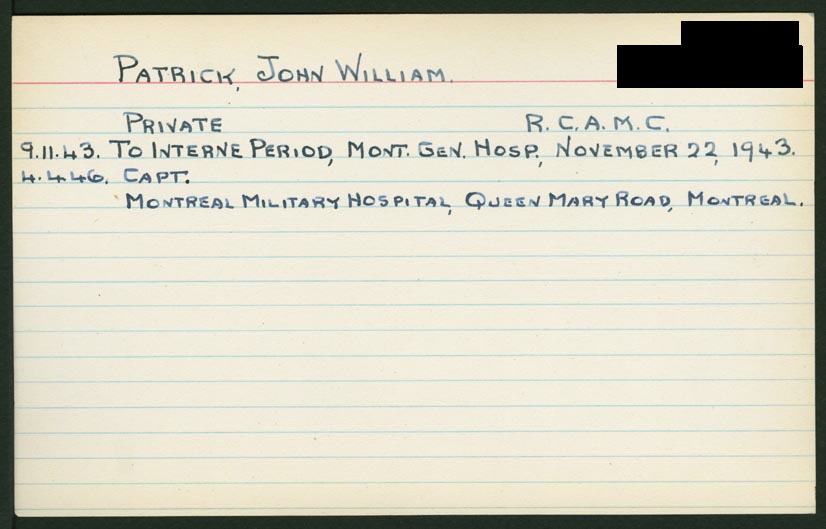 PATRICK, JOHN WILLIAM.
PRIVATE R. C. A. M. C.
9.11.43. TO INTERNE PERIOD, MONT. GEN. HOSP., NOVEMBER 22, 1943.
4.4.46. CAPT.
MONTREAL MILITARY HOSPITAL, QUEEN MARY ROAD, MONTREAL.